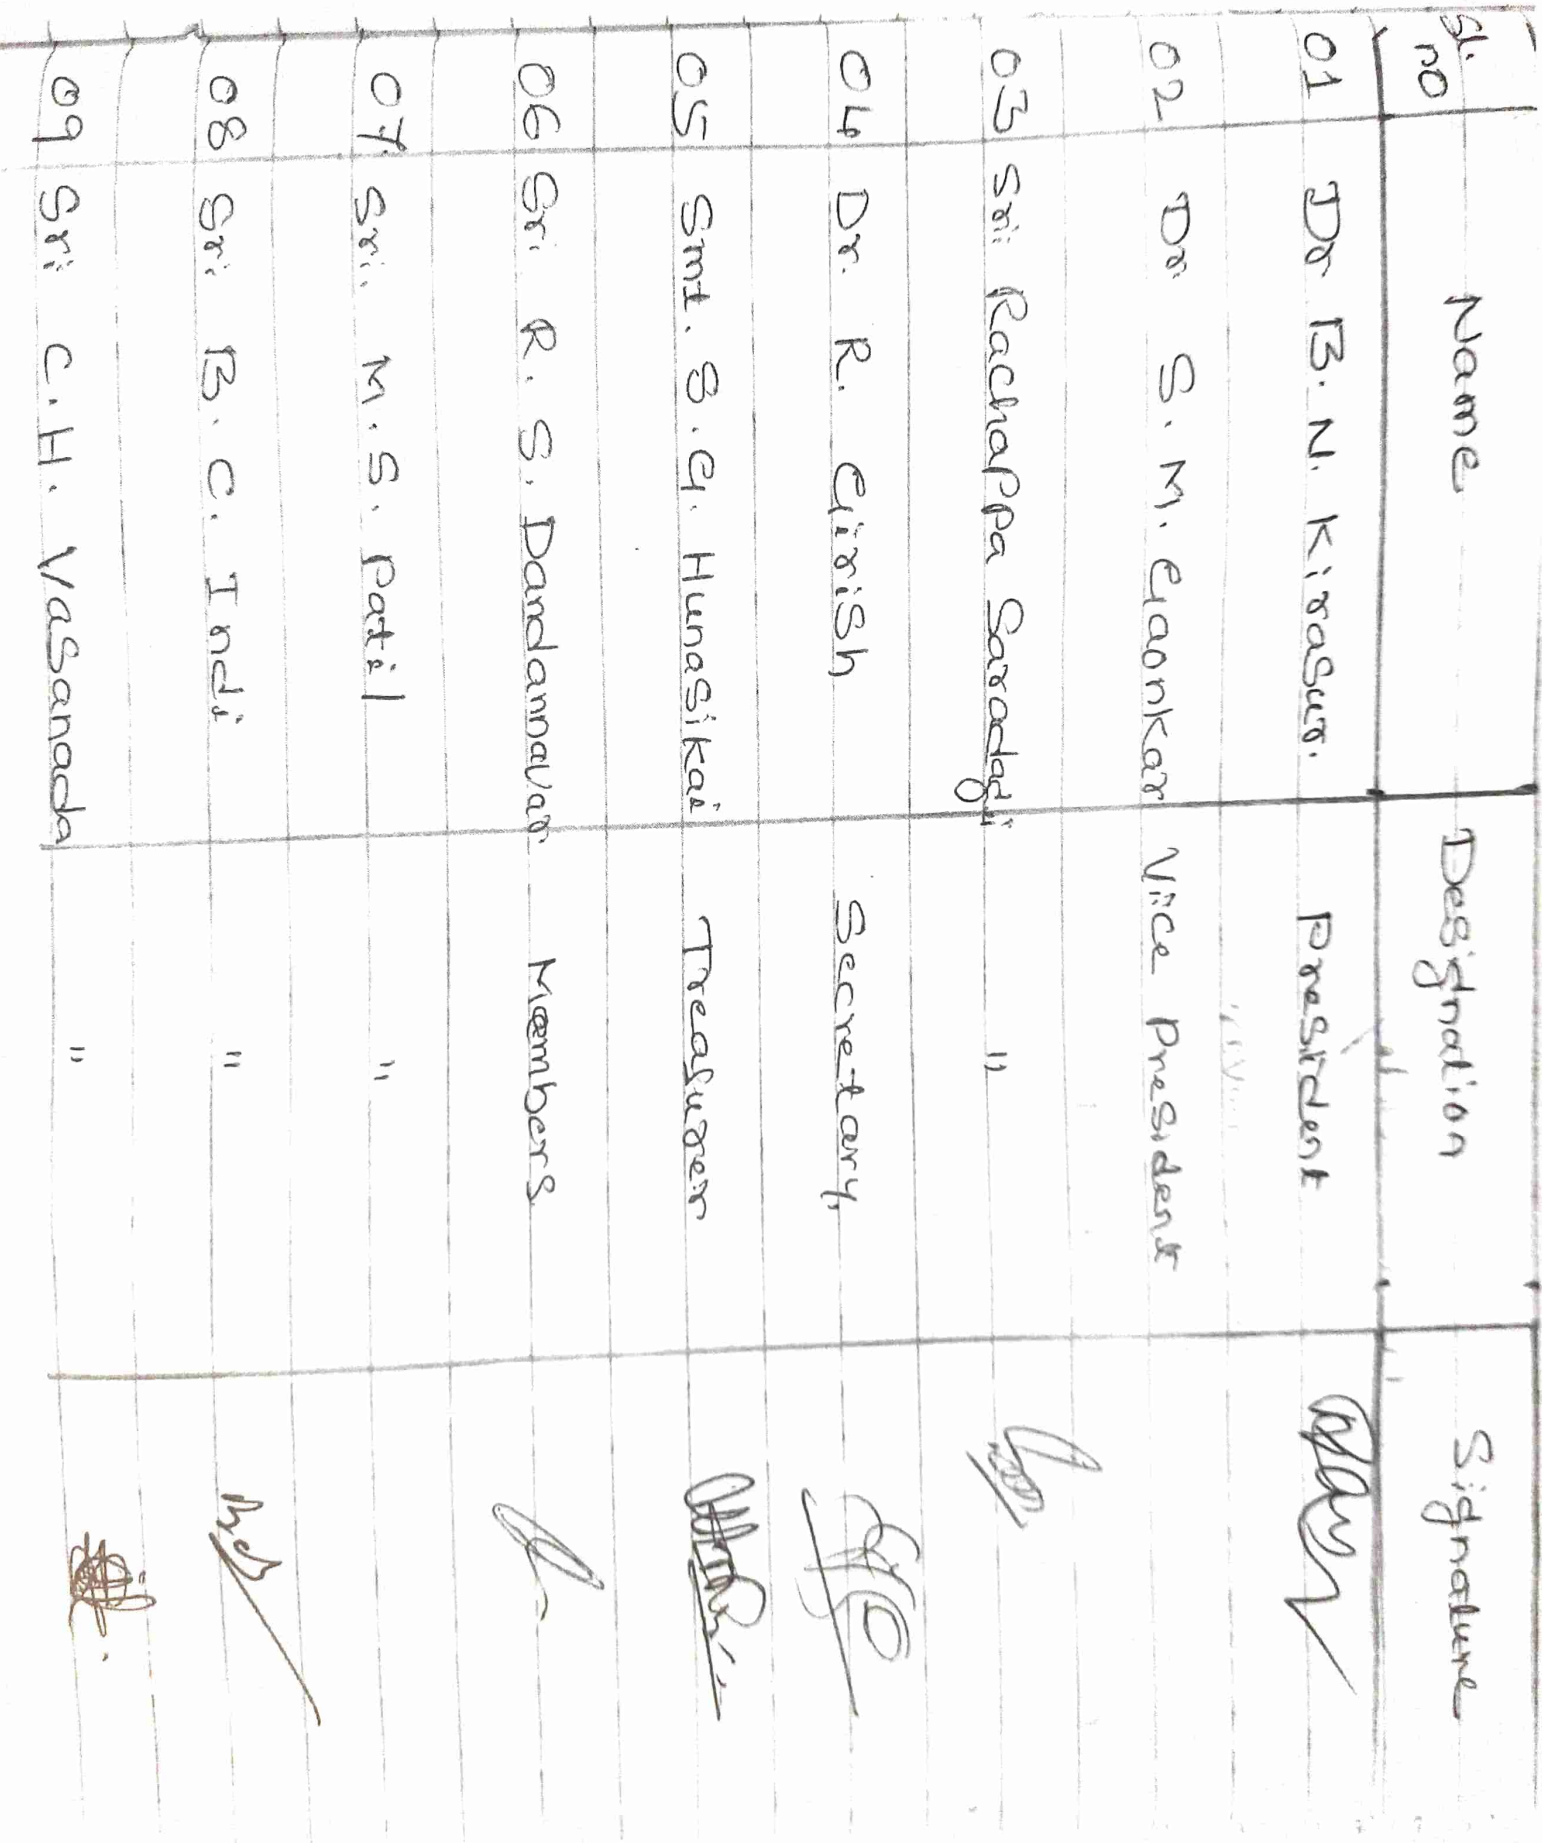 Sl. no Name Designation Signature
01 Dr B. N. Kirasur. President
02 Dr. S. M. Gaonkar Vice President
03 Sri Rachappa Saradagi "
04 Dr. R. Girish Secretary,
05 Smt. S. G. Hunasikai Treasurer
06 Sri. R. S. Dandannavar Members
07 Sri. M. S. Patil "
08 Sri. B. C. Indi "
09 Sri C. H. Vasanada "